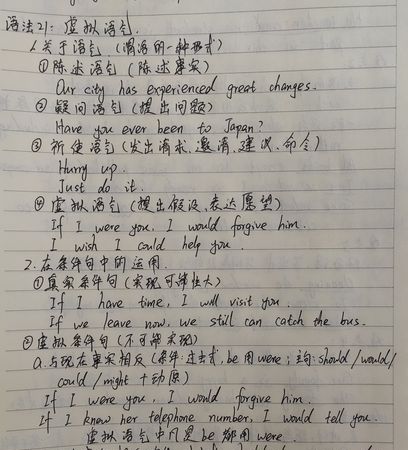 语法21: 虚拟语气.
1.关于语气 (谓语的一种形式)
①陈述语气 (陈述事实)
Our city has experienced great changes.
②疑问语气 (提出问题)
Have you ever been to Japan?
③祈使语气 (发出请求、邀请、建议、命令)
Hurry up.
Just do it.
④虚拟语气 (提出假设、表达愿望)
If I were you, I would forgive him.
I wish I could help you.
2.在条件句中的运用.
①真实条件句 (实现可能性大)
If I have time, I will visit you.
If we leave now, we still can catch the bus.
②虚拟条件句 (不可能实现)
a.与现在事实相反 (条件:过去式, be用were; 主句: should/would/
could/might+动原)
If I were you, I would forgive him.
If I knew her telephone number, I would tell you.
虚拟语气中凡是be都用were.